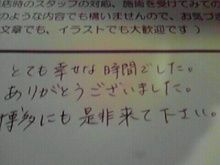 店時のスタッフの対応、施術を受けてみての
のような内容でも構いませんので、お気
文章でも、イラストでも大歓迎です）
とても幸せな時間でした。
ありがとうございました。
博多にも是非来て下さい。